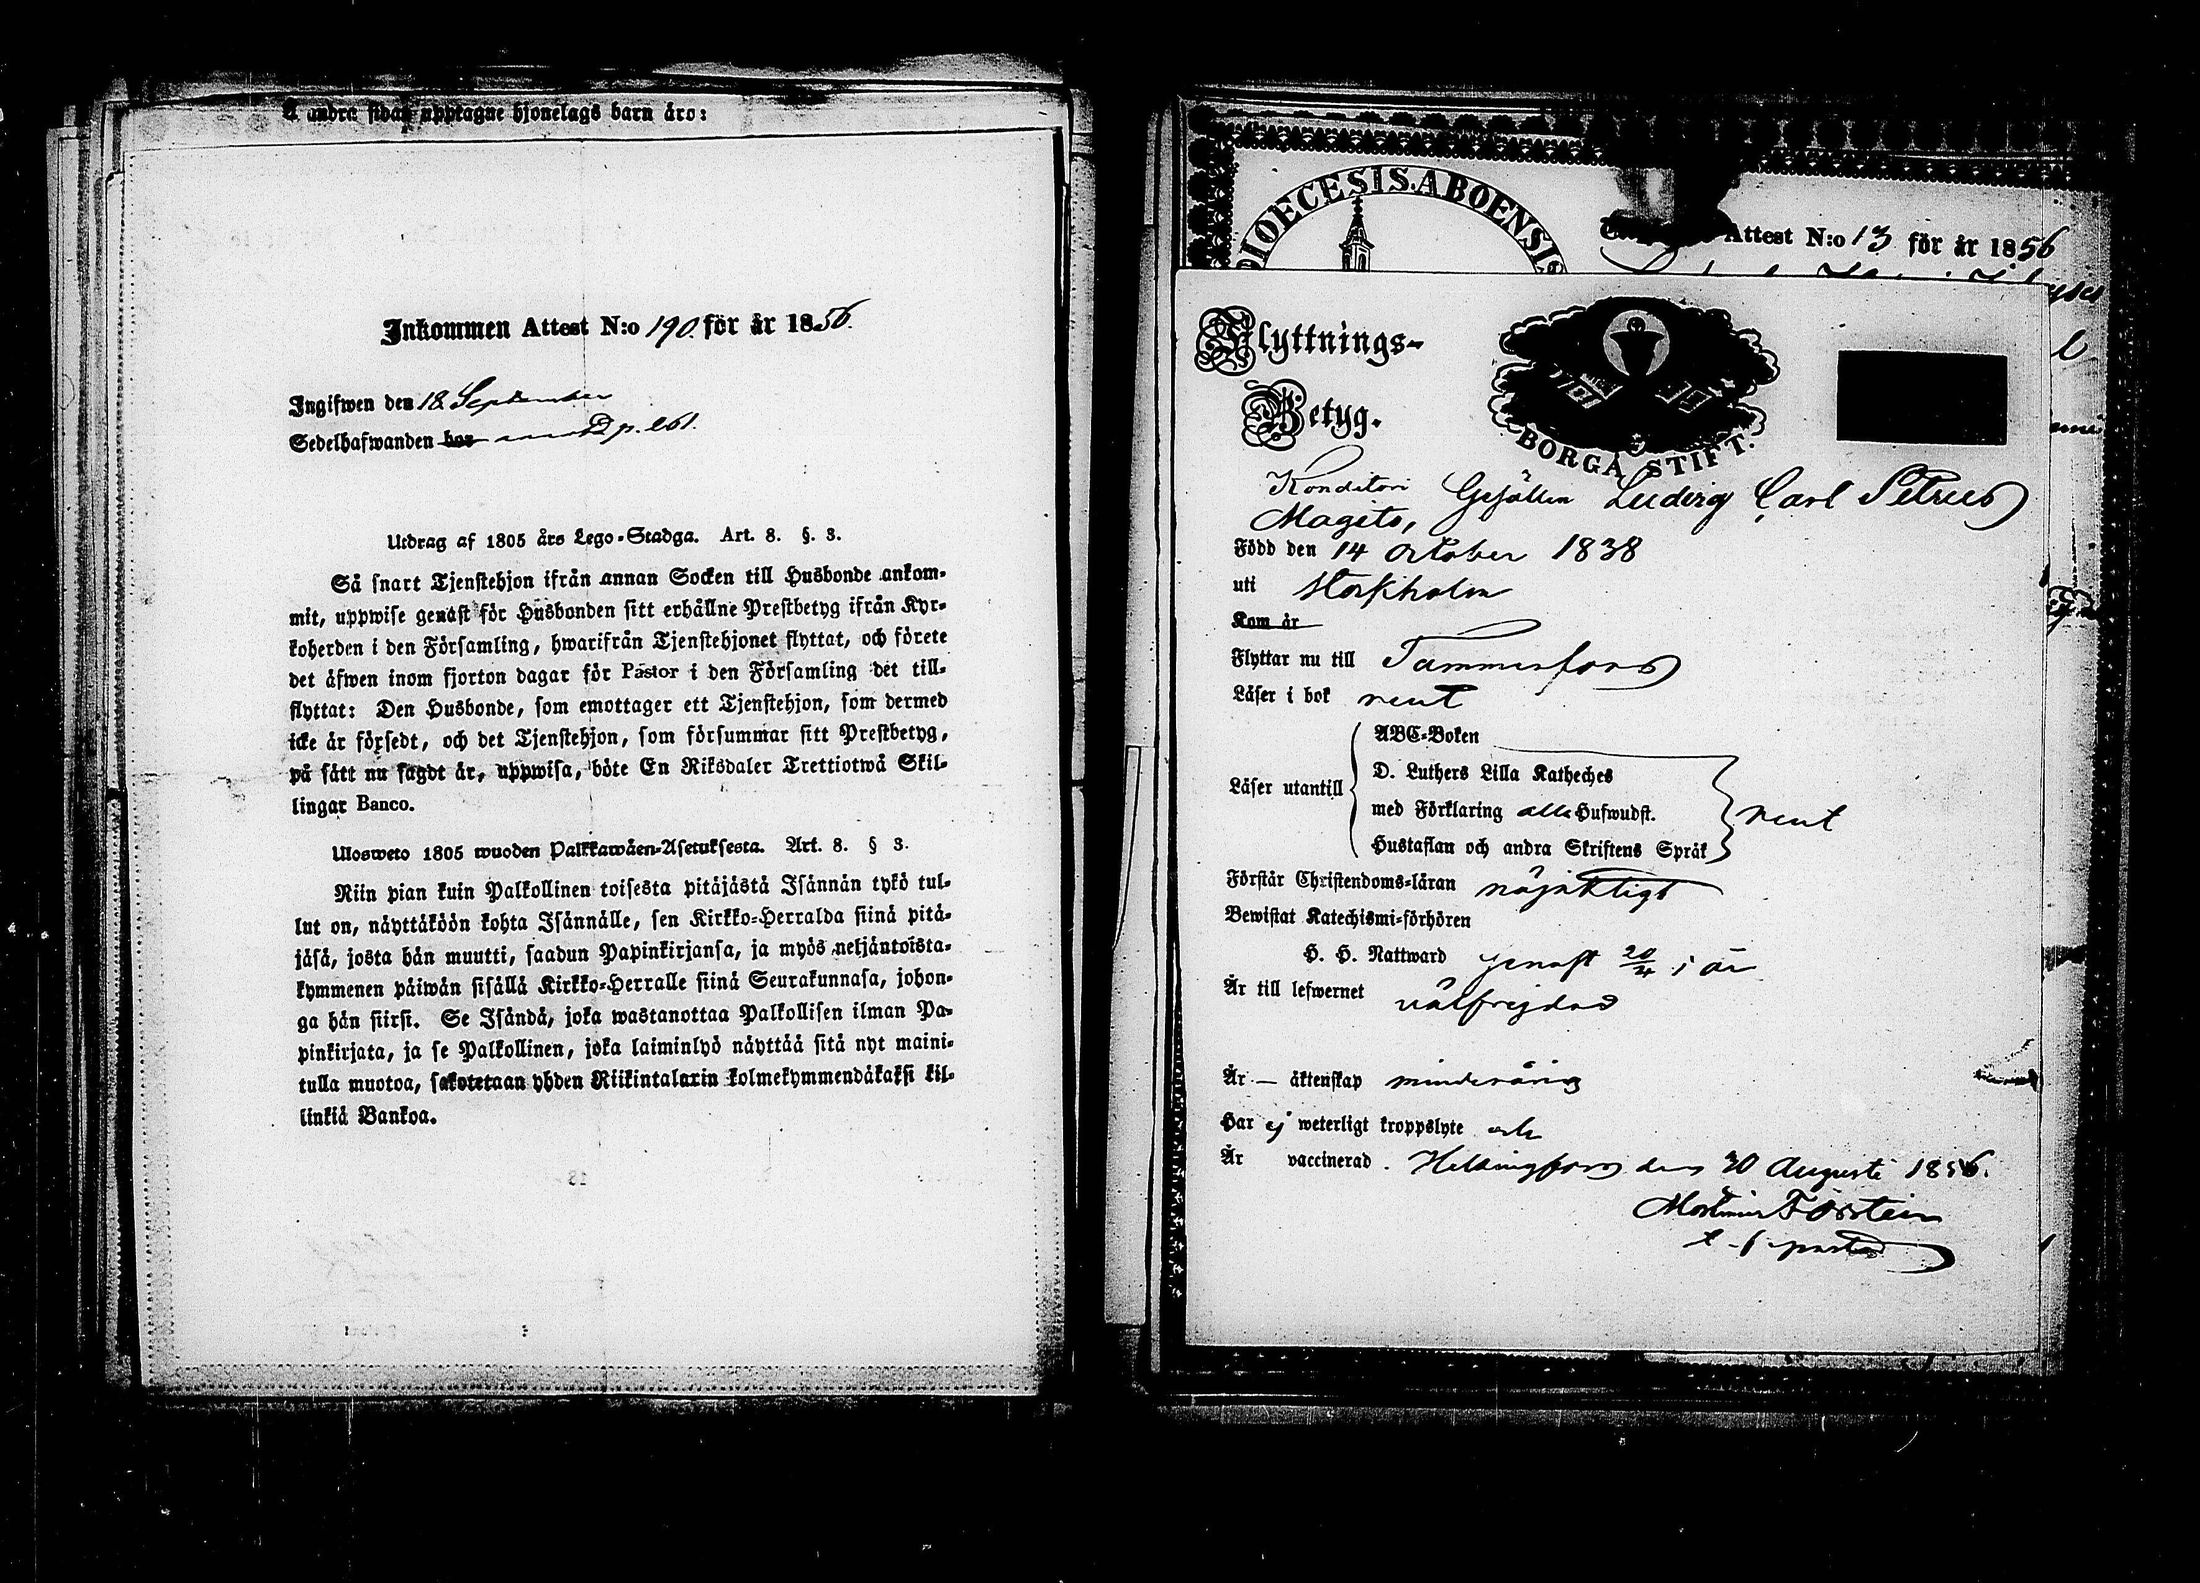 A andra sidan upptagne hjonelags barn äro:
Inkommen Attest N:o 190. för år 1856.
Ingifwen den 18 September
Sedelhafwanden bor p. 261.
Utdrag af 1805 års Lego-Stadga. Art. 8. §. 3.
Så snart Tjenstehjon ifrån annan Socken till Husbonde ankom-
mit, uppwise genast för Husbonden sitt erhållne Prestbetyg ifrån Kyr-
koherden i den Församling, hwarifrån Tjenstehjonet flyttat, och förete
det äfwen inom fjorton dagar för Pastor i den Församling det till-
flyttat: Den Husbonde, som emottager ett Tjenstehjon, som dermed
icke är försedt, och det Tjenstehjon, som försummar sitt Prestbetyg,
på sätt nu sagdt är, uppwisa, böte En Riksdaler Trettiotwå Skil-
lingar Banco.
Ulosweto 1805 wuoden Palkkawäen-Asetuksesta. Art. 8. § 3.
Niin pian kuin Palkollinen toisesta pitäjästä Isännän tykö tul-
lut on, näyttäköön kohta Isännälle, sen Kirkko-Herralda siinä pitä-
jäsä, josta hän muutti, saadun Papinkirjansa, ja myös neljäntoista-
kymmenen päiwän sisällä Kirkko-Herralle siinä Seurakunnasa, johon-
ga hän siirsi. Se Isändä, joka wastanottaa Palkollisen ilman Pa-
pinkirjata, ja se Palkollinen, joka laiminlyö näyttää sitä nyt maini-
tulla muotoa, sakotetaan yhden Riikintalarin kolmekymmendäkaksi kil-
linkiä Bankoa.
DIOECESIS.ABOENSIS
Attest N:o 13 för år 1856
Flyttnings-
Betyg.
BORGÅ STIFT.
Konditori Gesällen Ludvig Carl Petrus
Magito,
Född den 14 October 1838
uti Stockholm
Kom år
Flyttar nu till Tammerfors
Läser i bok rent
Läser utantill
ABC-Boken
D. Luthers Lilla Katheches
med Förklaring alla Hufwudst.
Hustaflan och andra Skriftens Språk
rent
Förstår Christendoms-läran nöjaktligt
Bewistat Katechismi-förhören
H. H. Nattward senast 20/4 i år
Är till lefwernet välfrejdad
Är — äktenskap minderårig
Har ej weterligt kroppslyte och
Är vaccinerad. Helsingfors den 30 Augusti 1856.